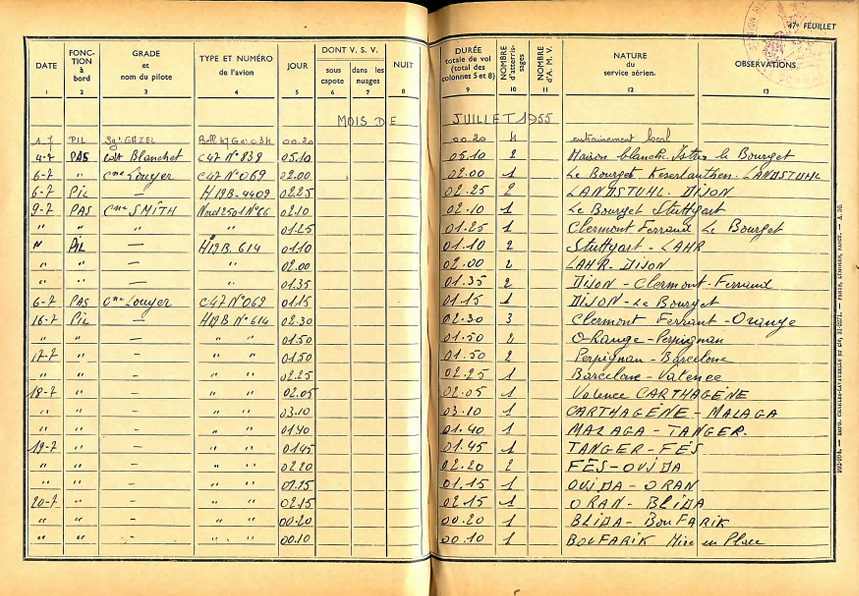 47e FEUILLET
DATE FONC-TION à bord GRADE et nom du pilote TYPE ET NUMÉRO de l'avion JOUR DONT V. S. V. sous capote dans les nuages NUIT DURÉE totale de vol (total des colonnes 5 et 8) NOMBRE d'atterris-sages NOMBRE d'A. M. V. NATURE du service aérien. OBSERVATIONS
1 2 3 4 5 6 7 8 9 10 11 12 13
MOIS DE JUILLET 1955
1-7 PIL Sgt Bell 47G 00.20 00.20 4 entrainement local
4-7 PAS Blanchet C47 N° 838 05.10 05.10 2 Maison blanche. Istres le Bourget
6-7 " Cne Louyer C47 N° 069 02.00 02.00 1 Le Bourget LANDSTUHL
6-7 PIL — H19B-4409 02.25 02.25 2 LANDSTUHL. DIJON
9-7 PAS Cne SMITH Nord 2501 N° 66 02.10 02.10 1 Le Bourget Stuttgart
" " — 01.25 01.25 1 Clermont Ferrand Le Bourget
" PIL — H19B.614 01.10 01.10 2 Stuttgart - LAHR
" " — " 02.00 02.00 2 LAHR-DIJON
" " — " 01.35 01.35 2 DIJON - Clermont-Ferrand
6-7 PAS Cne Louyer C47 N° 069 01.15 01.15 1 DIJON - Le Bourget
16-7 PIL — H19B N° 614 02.30 02.30 3 Clermont Ferrant - Orange
" " — " " 01.50 01.50 2 Orange - Perpignan
17-7 " — " " 01.50 01.50 2 Perpignan - Barcelone
" " — " " 02.25 02.25 1 Barcelone - Valence
18-7 " — " " 02.05 02.05 1 Valence CARTHAGÈNE
" " — " " 03.10 03.10 1 CARTHAGÈNE - MALAGA
" " — " " 01.40 01.40 1 MALAGA - TANGER.
19-7 " — " " 01.45 01.45 1 TANGER - FÈS
" " — " " 02.20 02.20 2 FÈS - OUJDA
" " — " " 01.15 01.15 1 OUJDA - ORAN
20-7 " — " " 02.15 02.15 1 ORAN - BLIDA
" " — " " 00.20 00.20 1 BLIDA - BOUFARIK
" " — " " 00.10 00.10 1 BOUFARIK Mise en Place